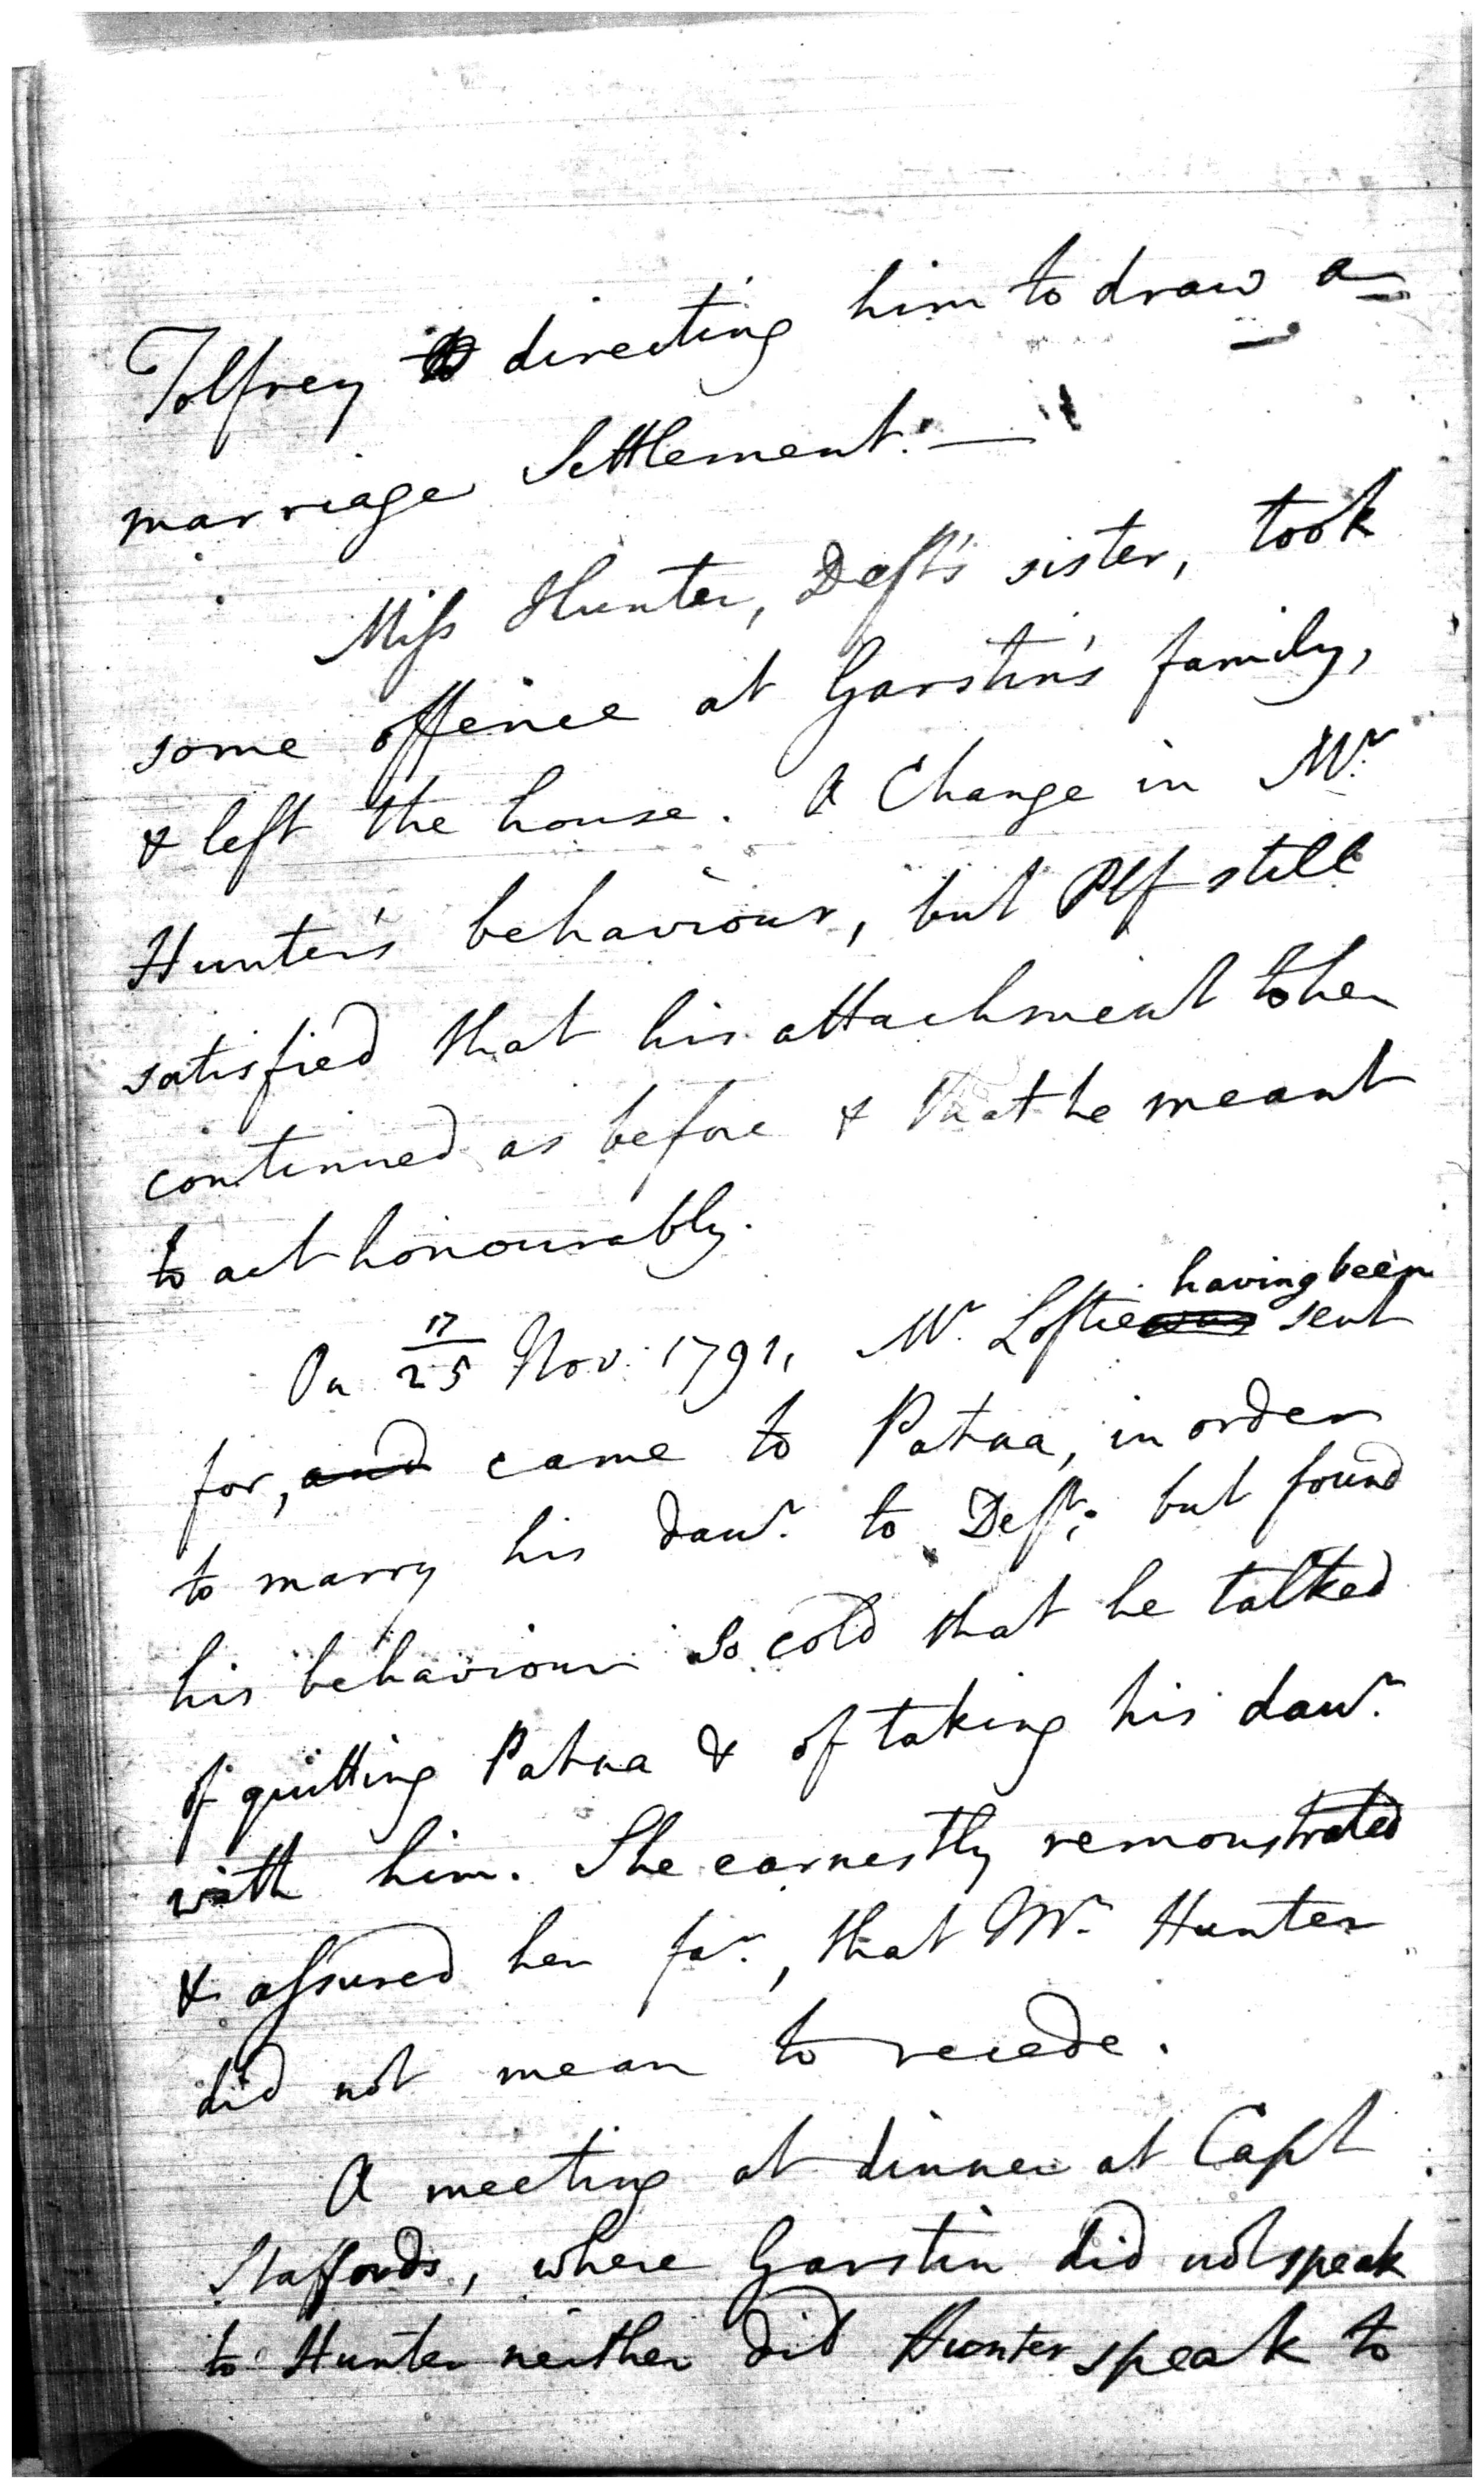 Tolfrey to directing him to draw a
marriage Settlement.—
Miss Hunter, Deft's sister, took
some offence at Garstin's family,
& left the house. A Change in Mr.
Hunter's behaviour, but Plf still
satisfied that his attachment to her
continued as before & that he meant
to act honourably.
having been
On 17/25 Nov. 1791, Mr. Loftie was sent
for, and came to Patna, in order
to marry his daur. to Deft; but found
his behaviour so cold that he talked
of quitting Patna & of taking his daur.
with him. She earnestly remonstrated
& assured her far., that Mr. Hunter
did not mean to recede.
A meeting at dinner at Capt
Staffords, where Garstin did not speak
to Hunter neither did Hunter speak to